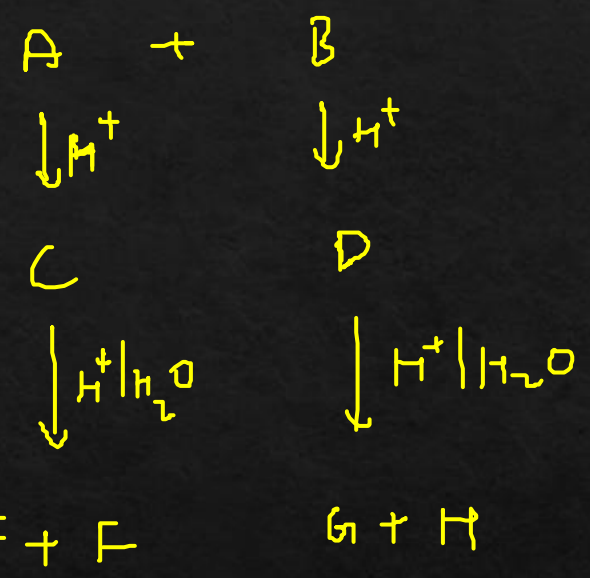 A + B
↓ H⁺ ↓ H⁺
C D
↓ H⁺ | H₂O ↓ H⁺ | H₂O
+ F G + H